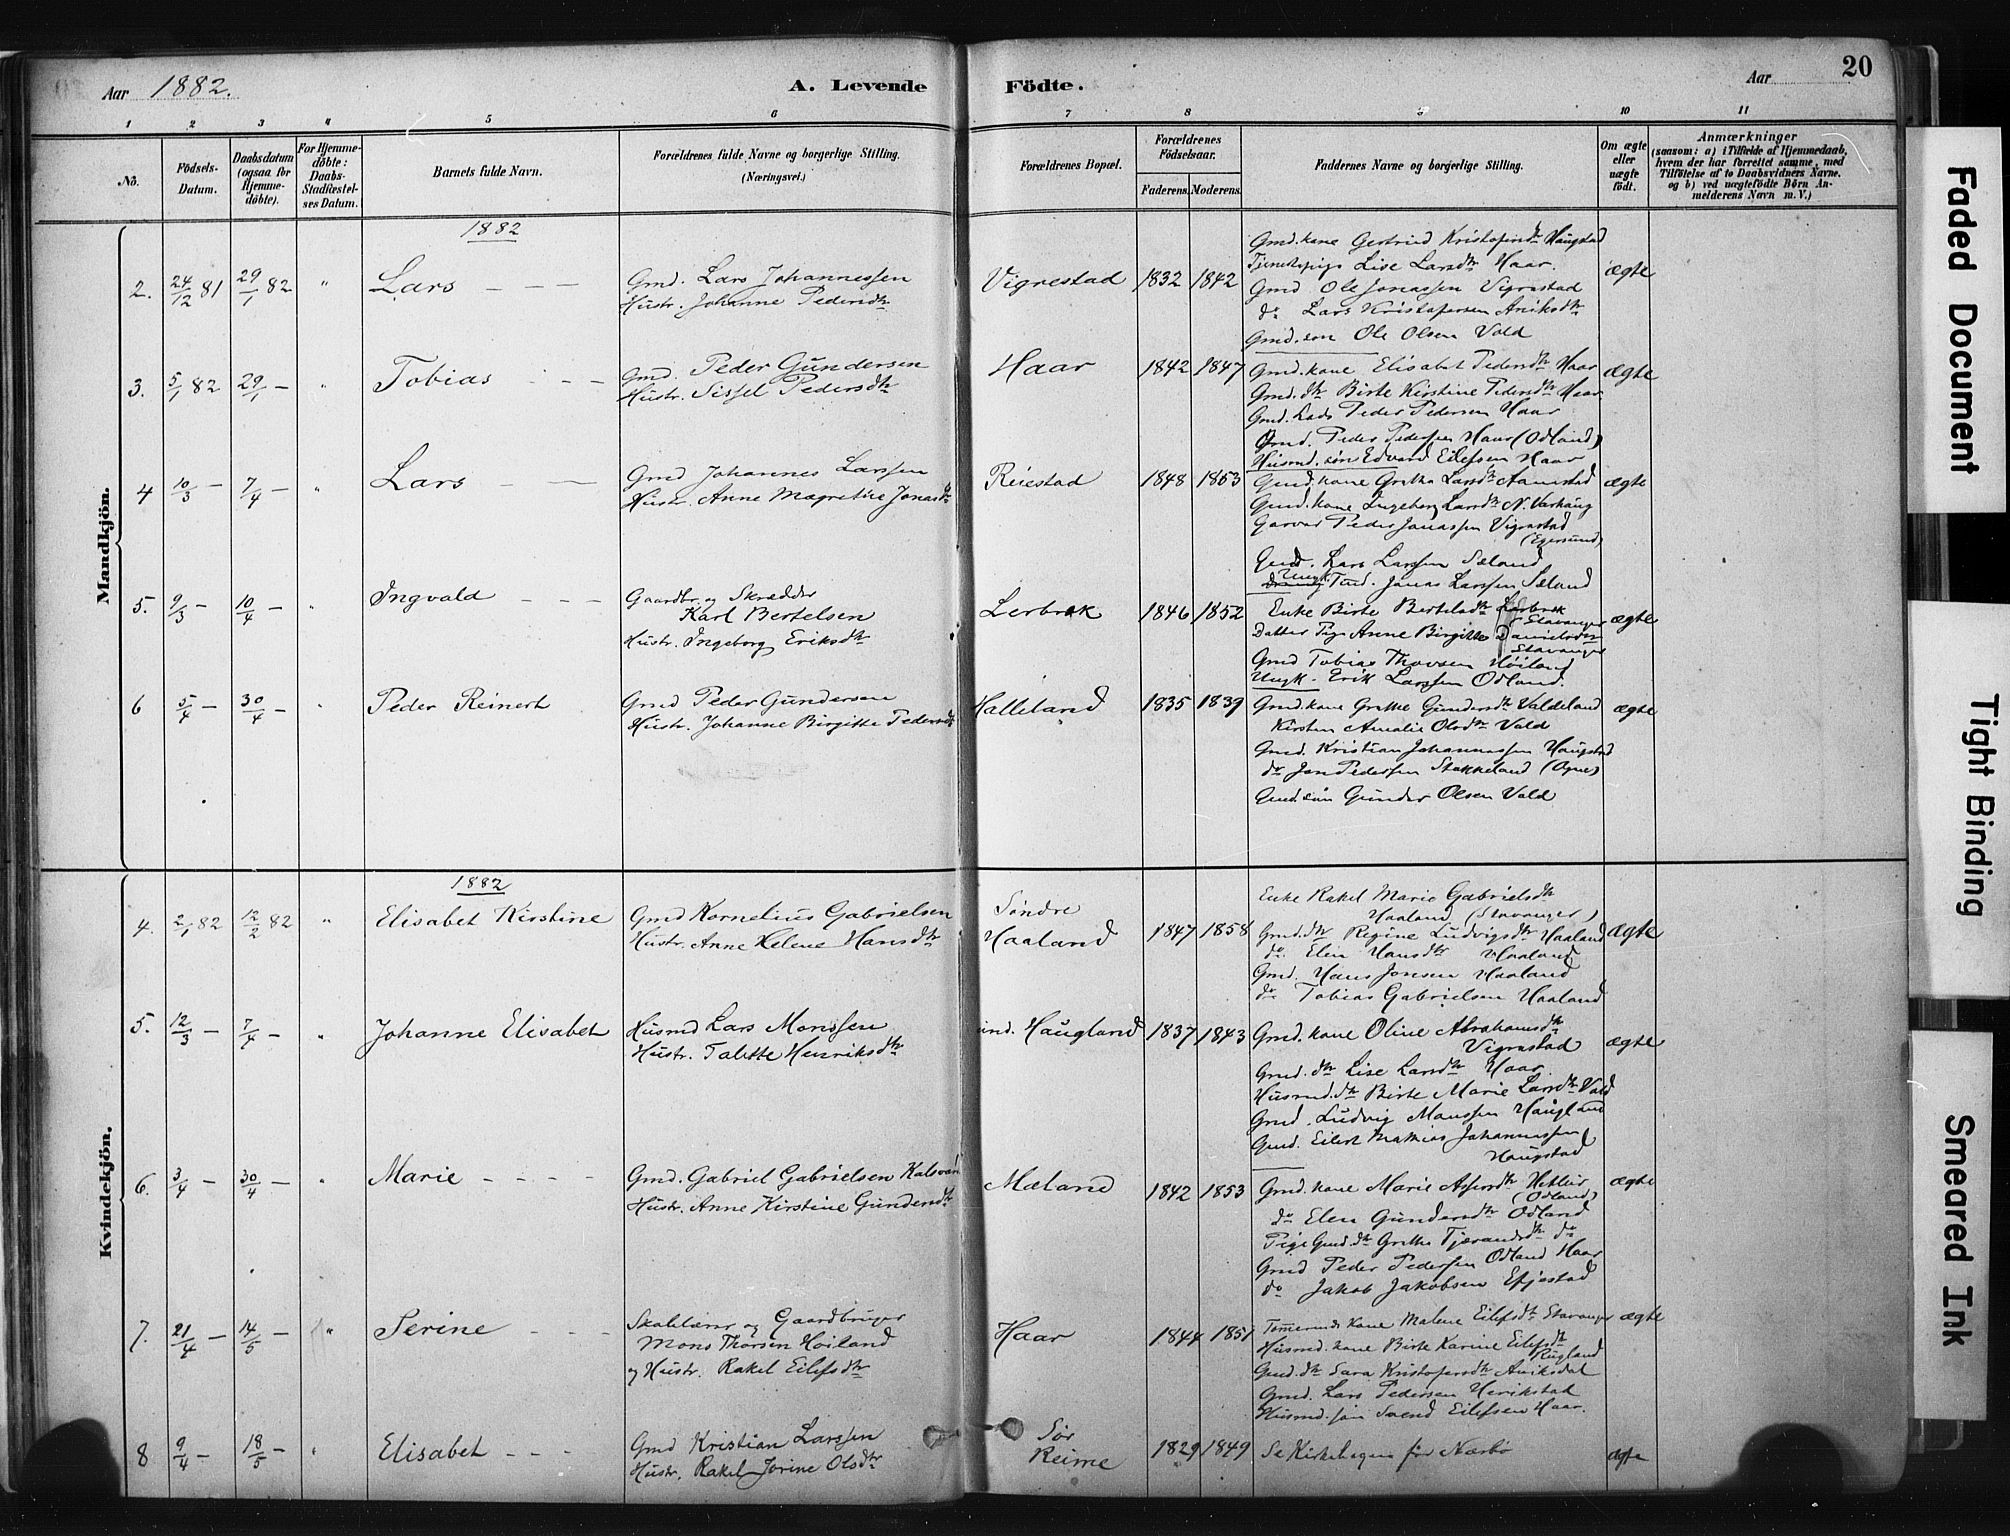 Aar 1882.
A. Levende
Födte.
Aar
20
1 2 3 4 5 6 7 8 9 10 11
No.
Födsels-Datum.
Daabsdatum (ogsaa for Hjemmedöbte).
For Hjemmedöbte: Daabs-Stadfæstelses Datum.
Barnets fulde Navn.
Forældrenes fulde Navne og borgerlige Stilling. (Næringsvei.)
Forældrenes Bopæl.
Forældrenes Födselsaar.
Faderens. Moderens.
Faddernes Navne og borgerlige Stilling.
Om ægte eller uægte födt.
Anmærkninger
(saasom: a) i Tilfælde af Hjemmedaab, hvem der har forrettet samme, med Tilföielse af to Daabsvidners Navne, og b) ved uægtefödte Börn Anmelderens Navn m. V.)
Mandkjön.
1882
2. 24/12 81 29/1 82 " Lars
Gmd. Lars Johannessen
Hustr. Johanne Pedersdtr
Vigrestad 1832 1842
Gmd. kone Gertrud Kristofersdtr Haugstad
Tjenestepige Lise Larsdtr Haar.
Gmd Ole Jonassen Vigrestad
do Lars Kristofersen Aniksdal
Gmd. søn Ole Olsen Vold
ægte
3. 5/1 82 29/1 — " Tobias
Gmd. Peder Gundersen
Hustr. Sissel Pedersdtr
Haar 1842 1847
Gmd. kone Elisabet Pedersdtr Haar
Gmd. dtr Birte Kirstine Pedersdtr Haar
Gmd. Lads Peder Pedersen Haar
Gmd. Peder Pedersen Haar (Odland)
Husmd. søn Edvard Eilefsen Haar
ægte
4 10/3 — 7/4 — " Lars
Gmd Johannes Larsen
Hustr. Anne Magretine Jonasdtr
Reiestad 1848 1853
Gmd. kone Grethe Larsdtr Aanestad
Gmd. kone Ingeborg Larsdtr N. Varhaug
Garver Peder Jonassen Vigrestad
(Egersund)
Gmd. Lars Larssen Sæland
Ungk. Jonas Larssen Sæland
ægte
5. 9/3 — 10/4 — " Ingvald
Gaardbr. og Skrædder
Karl Bertelsen
Hustr. Ingeborg Eriksdtr
Lerbrek 1846 1852
Enke Birte Bertelsdtr Lerbrek
Stavanger
Datter Pige Anne Birgitte Danielsdtr
Stavanger
Gmd Tobias Thorsen Höiland
Ungk. Erik Larssen Odland.
ægte
6 5/4 — 30/4 — " Peder Reinert
Gmd Peder Gundersen
Hustr. Johanne Birgitte Pedersdtr
Halleland 1835 1839
Gmd. kone Grethe Gundersdtr Valdeland
Kirsten Amalie Olsdtr Vold
Gmd. Kristian Johannessen Haugstad
do Jon Pedersen Stokkeland (Ogne)
Gmd. søn Gunder Olsen Vold
ægte
Kvindekjön.
1882
4. 2/1 82 12/2 82 " Elisabet Kirstine
Gmd Kornelius Gabrielsen
Hustr. Anne Helene Hansdtr
Söndre
Haaland 1847 1858
Enke Rakel Marie Gabrielsdtr
Haaland (Stavanger)
Gmd. dtr Regine Ludvigsdtr Haaland
do. Elen Hansdtr Haaland
Gmd. Hans Jonsen Haaland
do Tobias Gabrielsen Haaland
ægte
5. 12/3 — 7/4 — " Johanne Elisabet
Husmd Lars Monssen
Hustr. Talette Henriksdtr
ind. Haugland 1837 1843
Gmd. kone Oline Abrahamsdtr
Vigrestad
Gmd. dtr Lise Larsdtr Haar.
Husmd. dtr Birte Marie Larsdtr Vold
Gmd. Ludvig Monssen Haugland
Gmd. Eilert Mathias Johannessen
Haugstad
ægte
6. 3/4 — 30/4 — " Marie
Gmd. Gabriel Gabrielsen Kalsvari
Hustr. Anne Kirstine Gundersdtr
Mæland 1842 1853
Gmd. kone Marie Assersdtr Hetler
(Odland)
do Elen Gundersdtr Odland
Pige Gmd. dtr Grethe Tjærandsdtr do
Gmd Peder Pedersen Odland Haar
do Jakob Jakobsen Efjestad
ægte
7. 21/4 — 14/5 — " Serine
Skolelærer og Gaardbruger
Mons Thorsen Höiland
og Hustr. Rakel Eilefsdtr
Haar 1844 1851
Tömmermds kone Malene Eilefsdtr Stavanger
Husmd. kone Birte Karine Eilefsdtr
Rugland
Gmd. dtr Sara Kristofersdtr Aniksdal
Gmd. Lars Pedersen Herikstad
Husmd. søn Svend Eilefsen Haar.
ægte
8 9/4 — 18/5 — " Elisabet
Gmd Kristian Larssen
Hustr. Rakel Jorine Olsdtr
Sör
Reime 1829 1849
Se Kirkebogen for Nærbö
ægte
Faded Document
Tight Binding
Smeared Ink